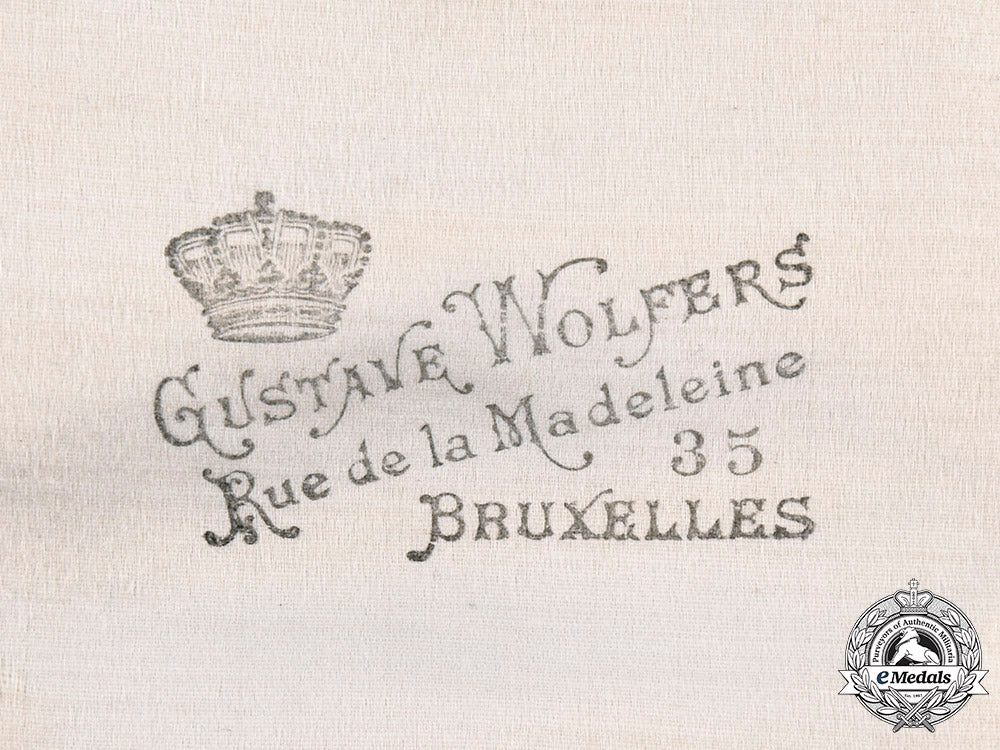 GUSTAVE WOLFERS
Rue de la Madeleine
35
BRUXELLES
Purveyors of Authentic Militaria
eMedals